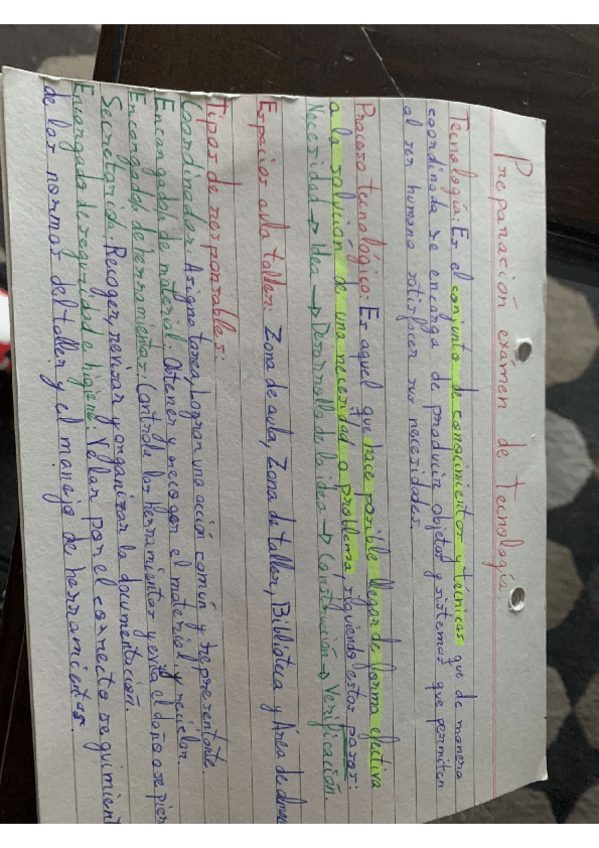 Preparación exámen de tecnología.
Tecnología: Es el conjunto de conocimientos y técnicas que de manera
coordinada se encarga de producir objetos y sistemas que permiten
al ser humano satisfacer sus necesidades.
Proceso tecnológico: Es aquel que hace posible llegar de forma efectiva
a la solución de una necesidad o problema, siguiendo estos pasos:
Necesidad → Idea → Desarrollo de la idea → Construcción → Verificación.
Espacios aula taller: Zona de aula, Zona de taller, Biblioteca y Área de
Tipos de responsables:
Coordinador: Asigna tarea, Lograr una acción común y representante.
Encargado de material: Obtener y recoger el material, y reciclar.
Encargado de herramientas: Controla las herramientas y evita el daño o se
Secretario/a: Recoger, revisar y organizar la documentación.
Encargado de seguridad e higiene: Velar por el correcto seguimient
de las normas del taller y el manejo de herramientas.